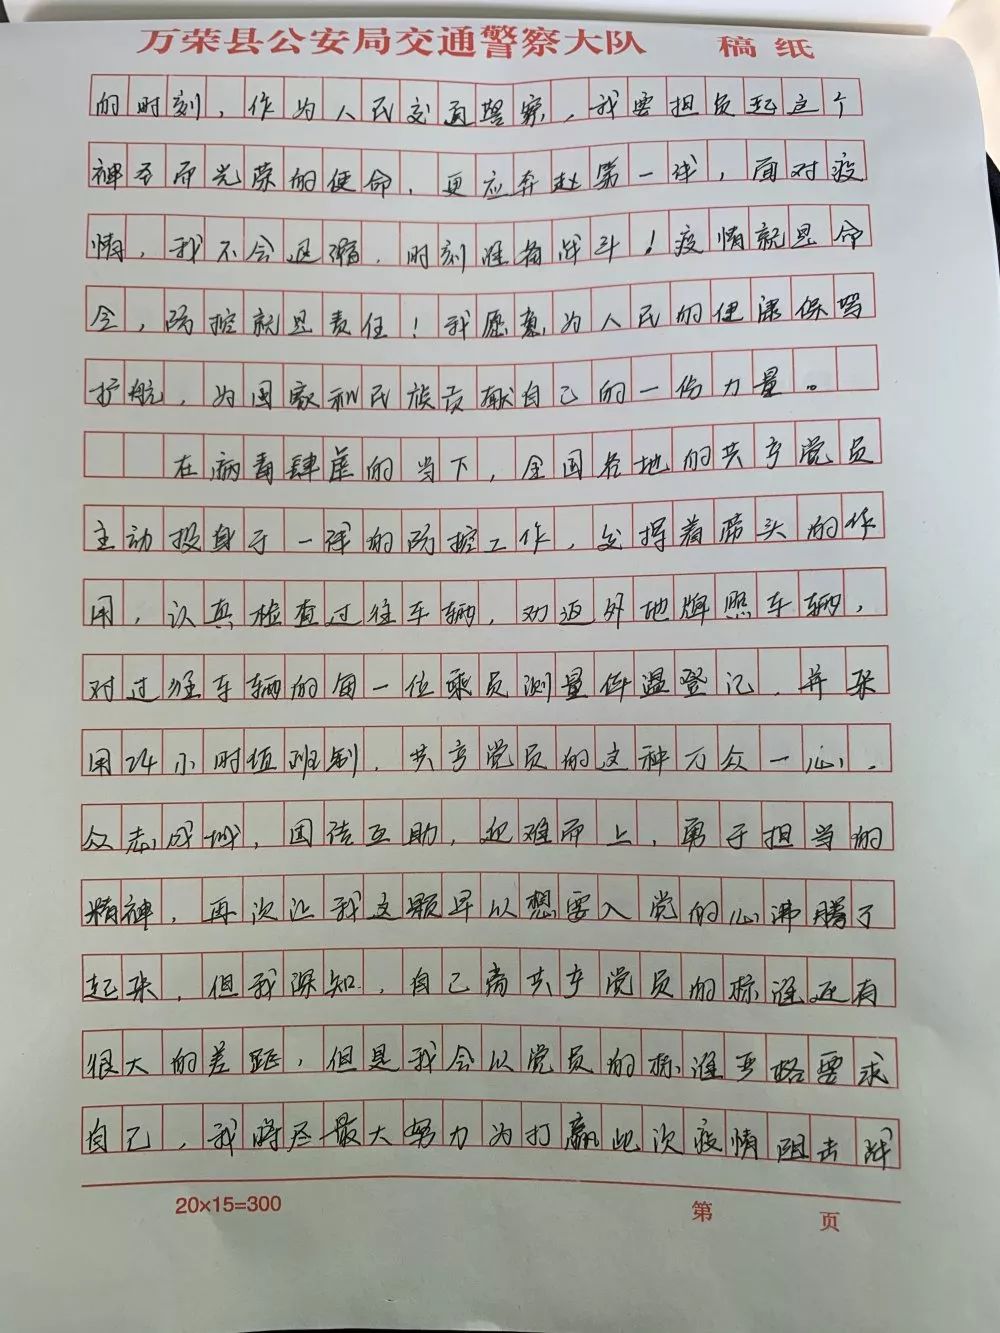 万荣县公安局交通警察大队 稿纸
的时刻，作为人民交通警察，我要担负起这个
神圣而光荣的使命，更应奔赴第一线，面对疫
情，我不会退缩，时刻准备战斗！疫情就是命
令，防控就是责任！我愿意为人民的健康保驾
护航，为国家和民族贡献自己的一份力量。
在病毒肆虐的当下，全国各地的共产党员
主动投身于一线的防控工作，发挥着带头的作
用，认真检查过往车辆，劝返外地牌照车辆，
对过往车辆的每一位乘员测量体温登记，并采
用24小时值班制，共产党员的这种万众一心，
众志成城，团结互助，迎难而上，勇于担当的
精神，再次让我这颗早以想要入党的心沸腾了
起来，但我深知，自己离共产党员的标准还有
很大的差距，但是我会以党员的标准严格要求
自己，我将尽最大努力为打赢此次疫情阻击战
20×15=300 第 页